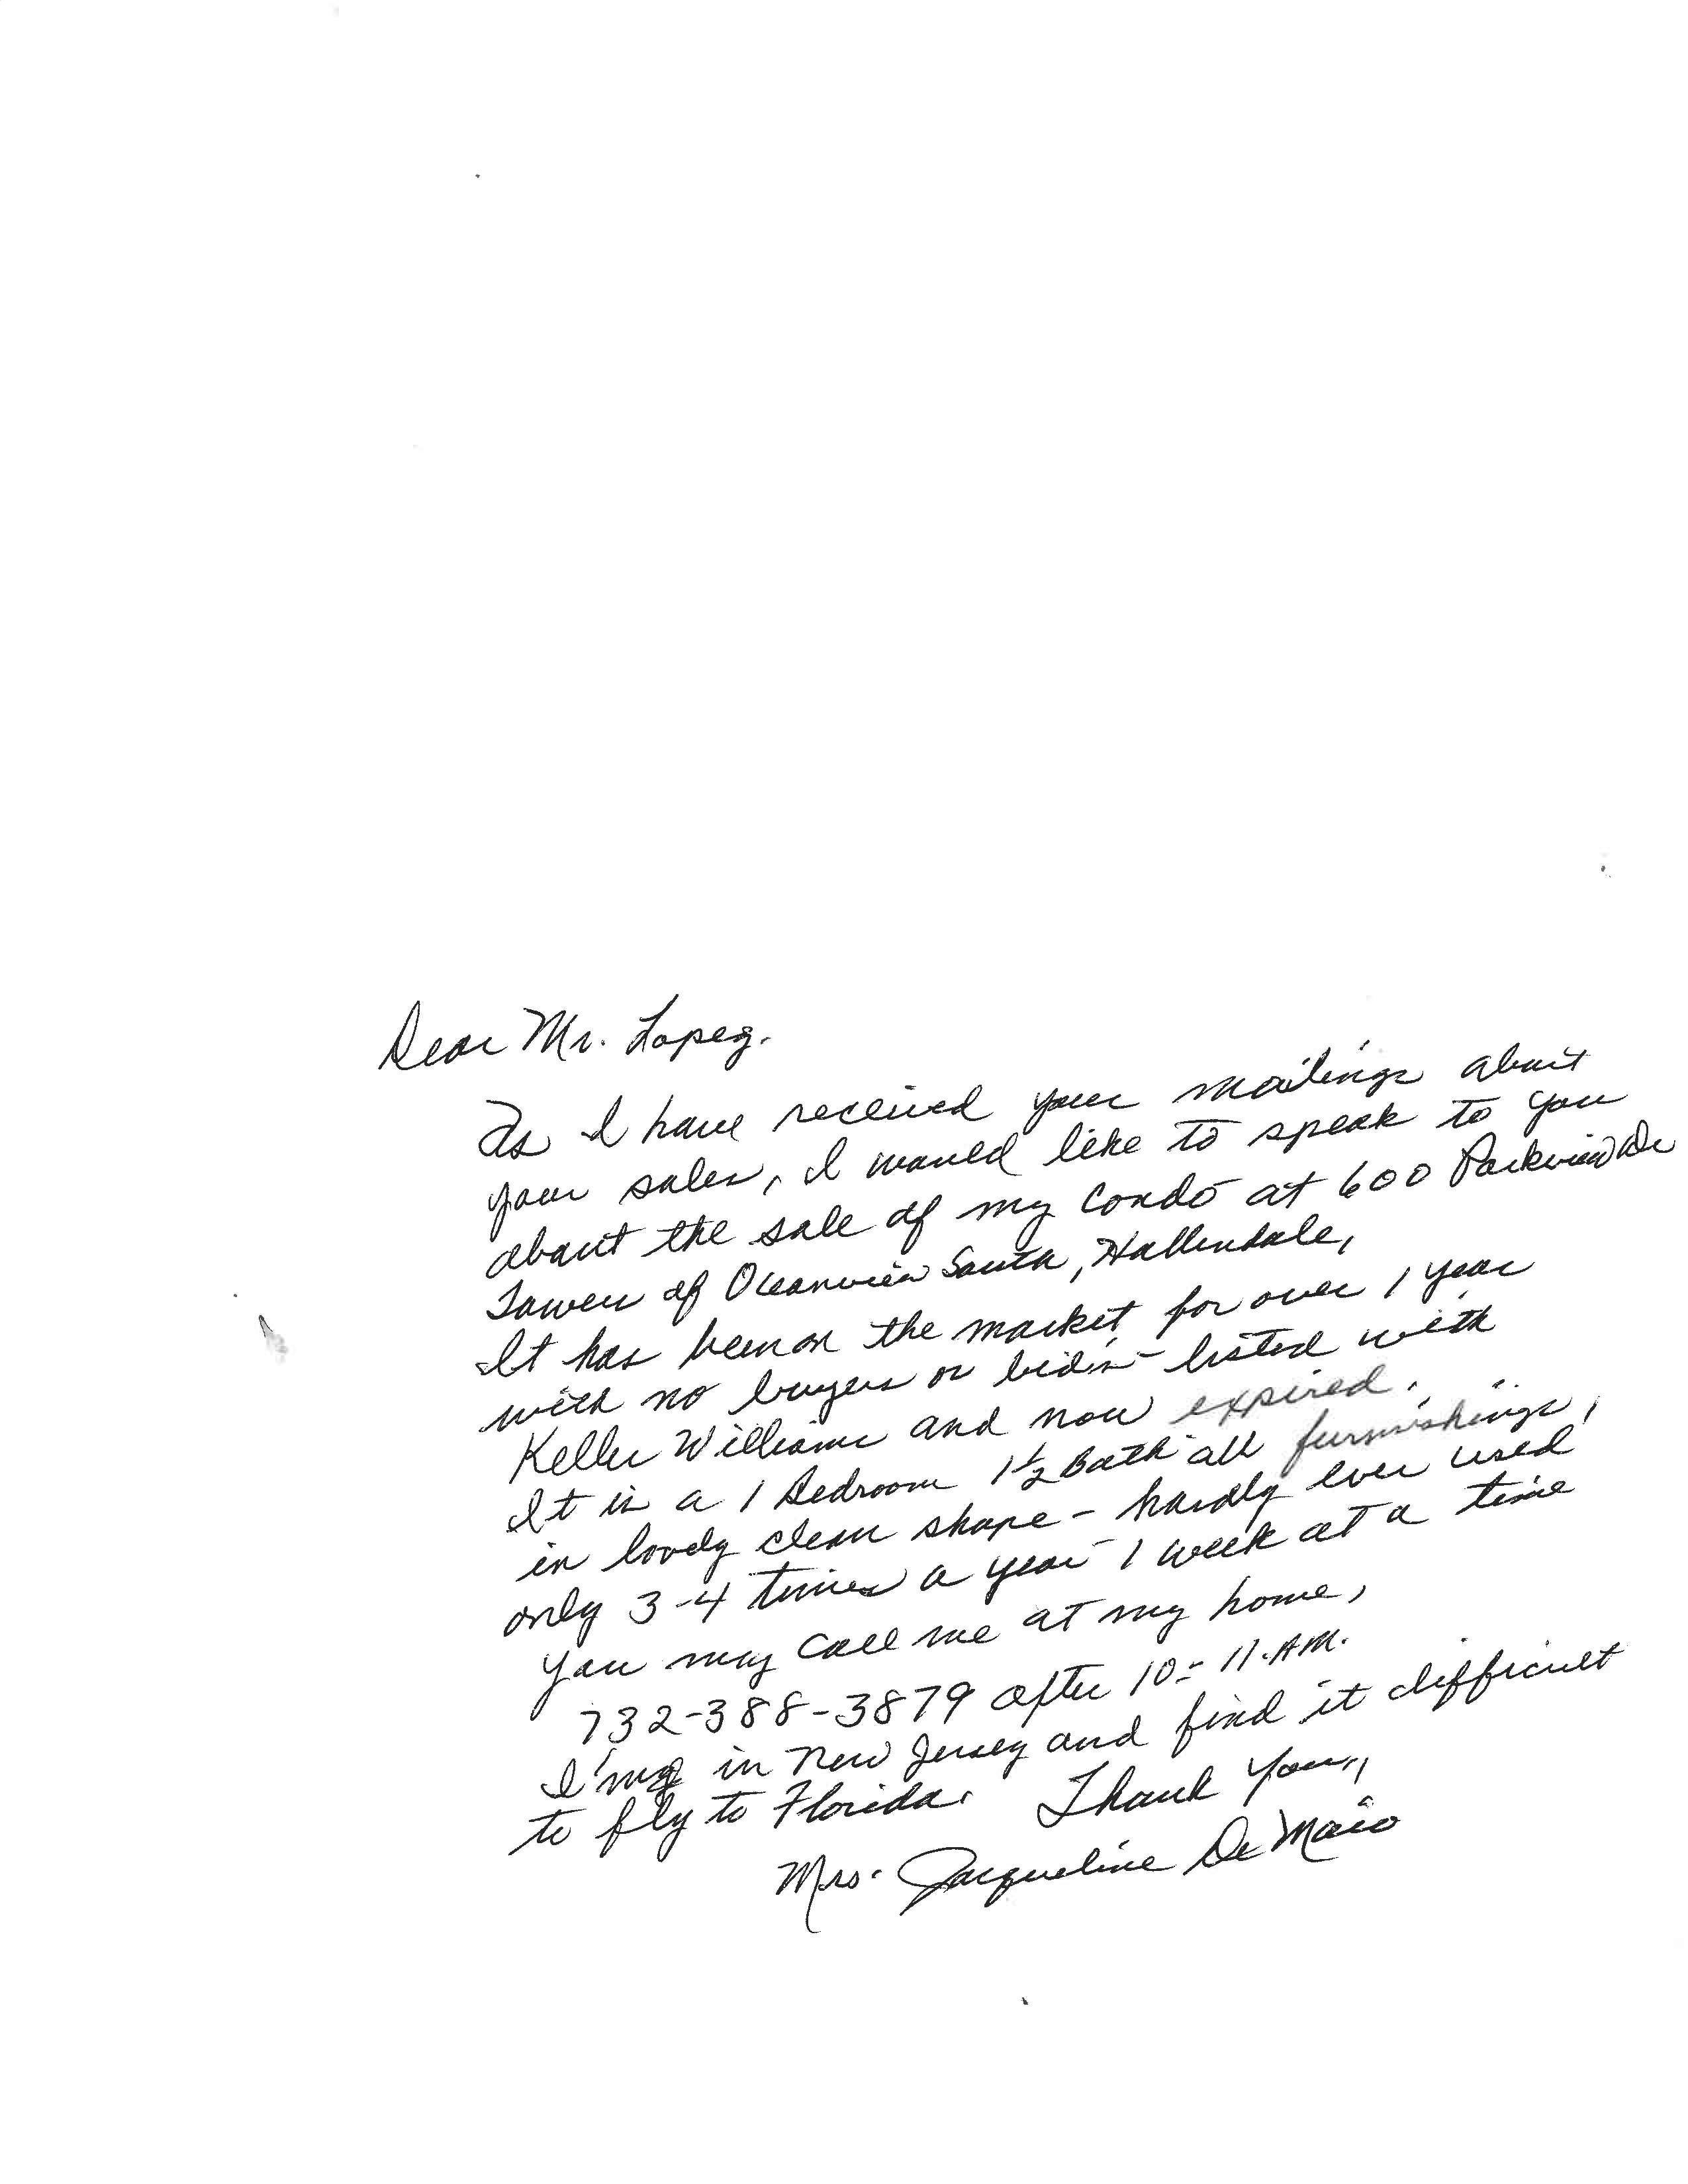 Dear Mr. Lopez.
As I have received your mailings about
your sales, I would like to speak to you
about the sale of my condo at 600 Parkview Dr
Towers of Oceanview South, Hallendale,
It has been on the market for over 1 year
with no buyers or bids - listed with
Keller Williams and now expired.
It is a 1 Bedroom 1½ Bath all furnishings,
in lovely clean shape - hardly ever used
only 3-4 times a year 1 week at a time
You may call me at my home,
732-388-3879 after 10 - 11. A.M.
I'm in New Jersey and find it difficult
to fly to Florida. Thank You,
Mrs. Jacqueline De Maio